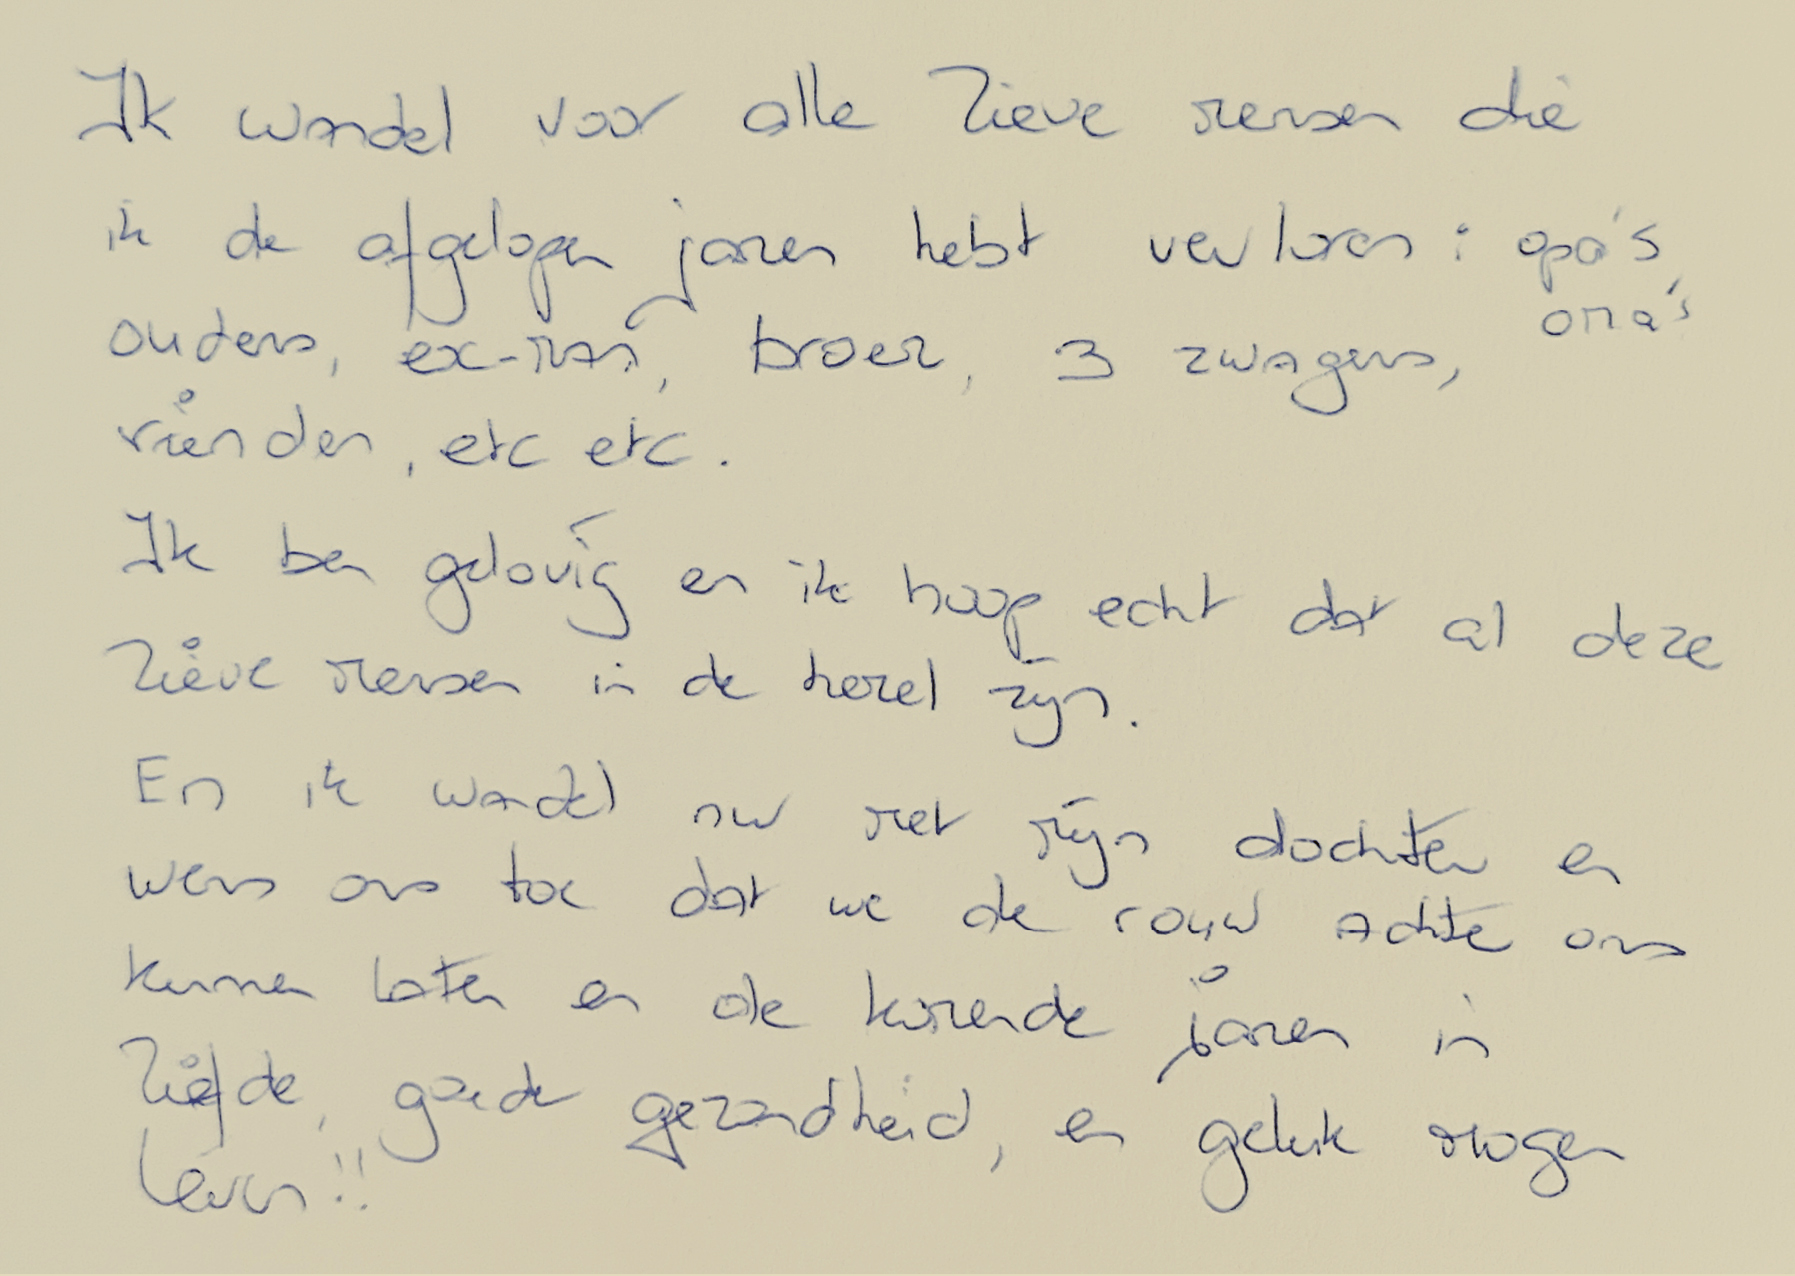 Ik wandel voor alle lieve mensen die
ik de afgelopen jaren hebt verloren : opa's,
oma's
ouders, ex-man, broer, 3 zwagers,
vrienden, etc etc.
Ik ben gelovig en ik hoop echt dat al deze
lieve mensen in de hemel zijn.
En ik wandel nu met mijn dochter en
wens ons toe dat we de rouw achter ons
kunnen laten en de komende jaren in
liefde, goede gezondheid, en geluk mogen
leven!!